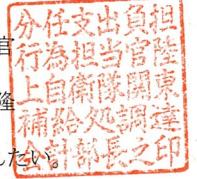 官
隆
たい。
分任支出負担
行為担当官陸
上自衛隊関東
補給処調達
会計部長之印